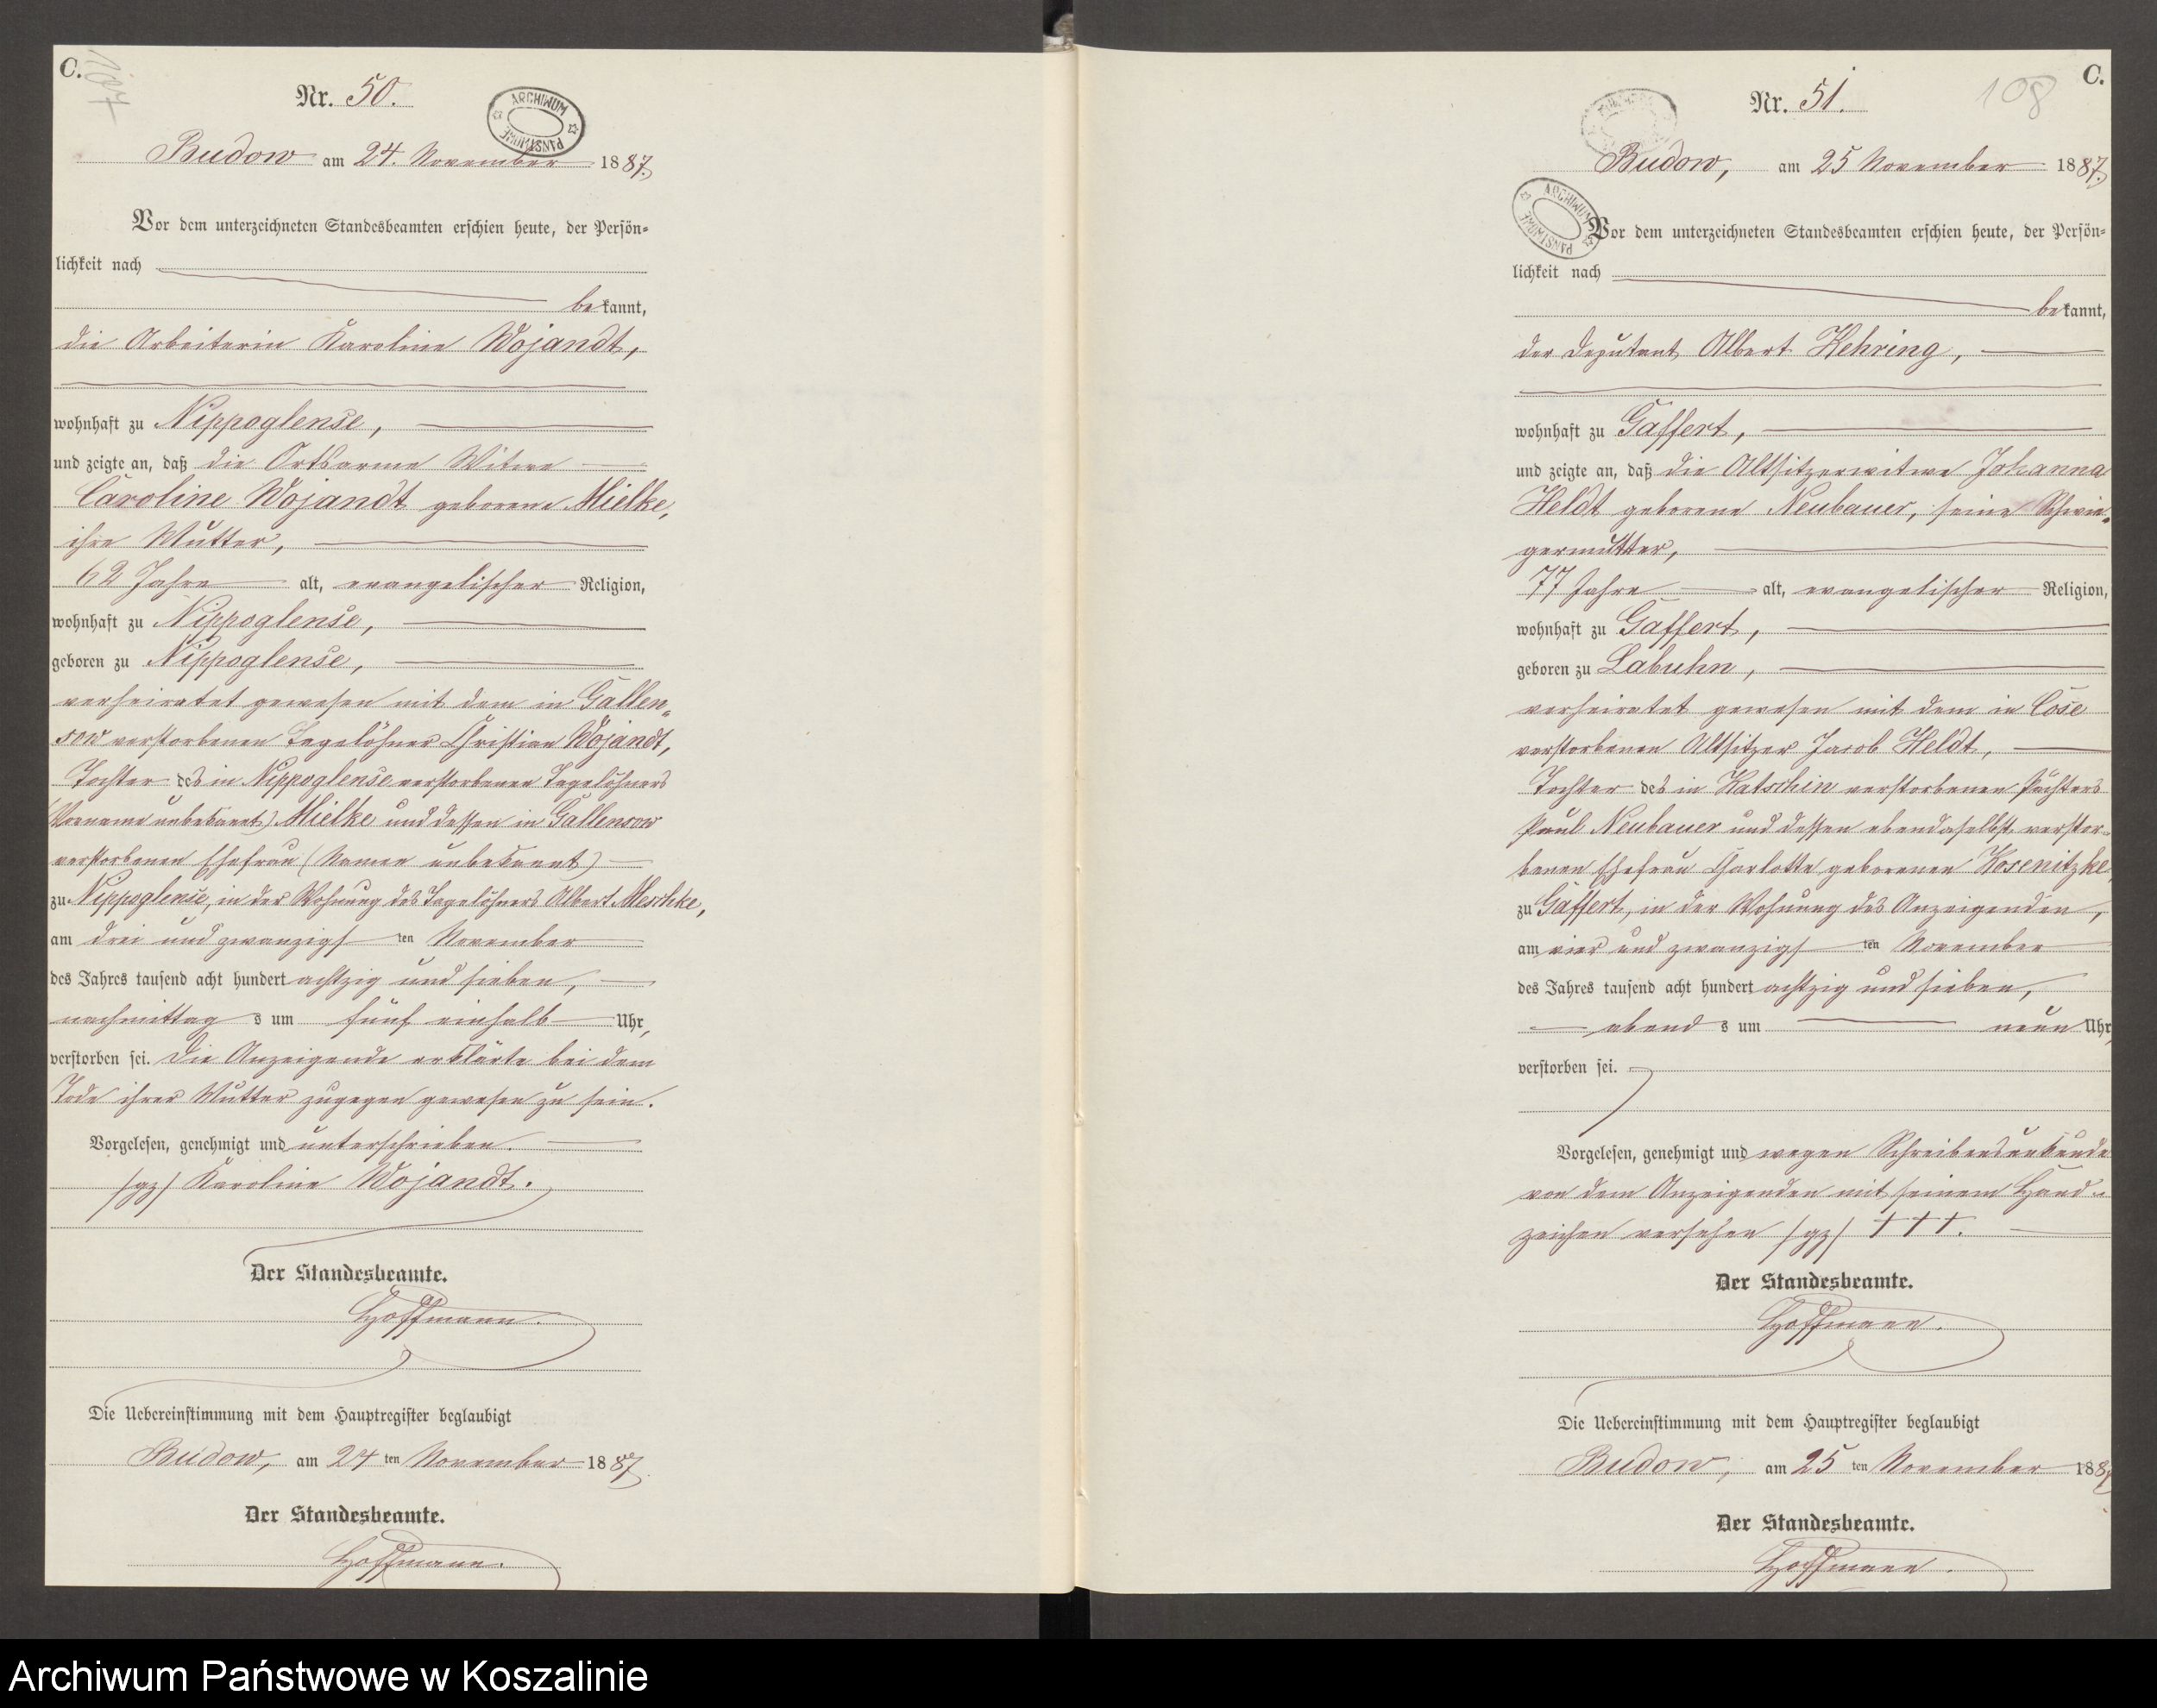 C.
Nr. 50.
ARCHIWUM PAŃSTWOWE
Budow am 24. November 1887.
Vor dem unterzeichneten Standesbeamten erschien heute, der Persön-
lichkeit nach
bekannt,
die Arbeiterin Karoline Wojandt,
wohnhaft zu Nippoglense,
und zeigte an, daß die Ortsarme Witwe
Caroline Wojandt geborene Mielke,
ihre Mutter,
62 Jahre alt, evangelischer Religion,
wohnhaft zu Nippoglense,
geboren zu Nippoglense,
verheiratet gewesen mit dem in Gallen-
sow verstorbenen Tagelöhner Christian Wojandt,
Tochter des in Nippoglense verstorbenen Tagelöhners
(Vorname unbekannt) Mielke und dessen in Gallensow
verstorbenen Ehefrau (Namen unbekannt)
zu Nippoglense, in der Wohnung des Tagelöhners Albert Meschke,
am drei und zwanzigsten November
des Jahres tausend acht hundert achtzig und sieben,
nachmittags um fünf einhalb Uhr,
verstorben sei. Die Anzeigende erklärte bei dem
Tode ihrer Mutter zugegen gewesen zu sein.
Vorgelesen, genehmigt und unterschrieben.
/gz/ Karoline Wojandt.
Der Standesbeamte.
Hoffmann.
Die Uebereinstimmung mit dem Hauptregister beglaubigt
Budow, am 24ten November 1887.
Der Standesbeamte.
Hoffmann.
C.
108
Nr. 51.
Budow, am 25 November 1887.
ARCHIWUM PAŃSTWOWE
Vor dem unterzeichneten Standesbeamten erschien heute, der Persön-
lichkeit nach
bekannt,
der Deputant Albert Kehring,
wohnhaft zu Gaffert,
und zeigte an, daß die Altsitzerwitwe Johanna
Heldt geborene Neubauer, seine Schwie-
germutter,
77 Jahre alt, evangelischer Religion,
wohnhaft zu Gaffert,
geboren zu Labuhn,
verheiratet gewesen mit dem in Cose
verstorbenen Altsitzer Jacob Heldt,
Tochter des in Katschin verstorbenen Pächters
Paul Neubauer und dessen ebendaselbst verstor-
benen Ehefrau Charlotte geborenen Kosenitzke
zu Gaffert, in der Wohnung des Anzeigenden,
am vier und zwanzigsten November
des Jahres tausend acht hundert achtzig und sieben,
abends um neun Uhr,
verstorben sei.
Vorgelesen, genehmigt und wegen Schreibensunkunde
von dem Anzeigenden mit seinem Hand-
zeichen versehen /gz/ + + +.
Der Standesbeamte.
Hoffmann.
Die Uebereinstimmung mit dem Hauptregister beglaubigt
Budow, am 25ten November 1887
Der Standesbeamte.
Hoffmann.
Archiwum Państwowe w Koszalinie